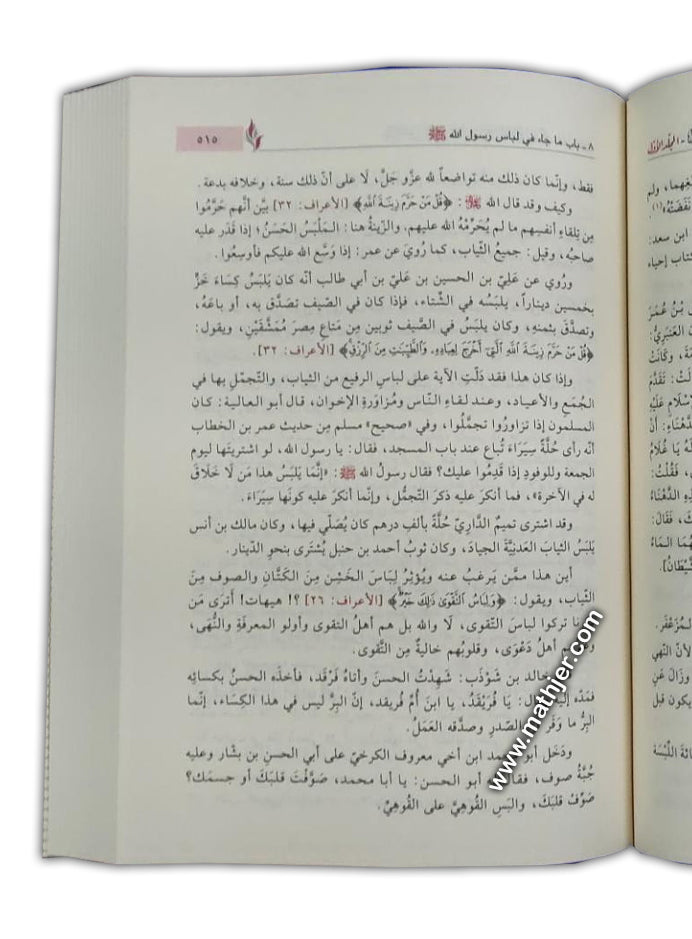 ٨ـ باب ما جاء في لباس رسول الله ﷺ
٥١٥
فقط، وإنّما كان ذلك منه تواضعاً لله عزَّو جَلَّ، لَا على أنّ ذلك سنة، وخلافه بدعة.
وكيف وقد قال الله ﷺ: ﴿قُلْ مَنْ حَرَّمَ زِينَةَ اللَّهِ﴾ [الأعراف: ٣٢] بيَّن أنَّهم حَرَّمُوا
مِن تِلقاءِ أنفسِهم ما لم يُحَرِّمْهُ الله عليهم. والزِّينةُ هنا: المَلْبَسُ الحَسَنُ؛ إذا قَدَر عليه
صاحبُه، وقيل: جميعُ الثِّياب، كما رُويَ عن عمر: إذا وَسَّع الله عليكم فأوسِعُوا.
ورُوي عن عَلِيِّ بن الحسين بن عَليِّ بن أبي طالب أنّه كان يَلبَسُ كِسَاءَ خَزٍّ
بخمسين ديناراً، يلبَسُه في الشِّتاء، فإذا كان في الصَّيف تصَدَّق به، أو باعَهُ،
وتصدَّق بثمنهِ، وكان يلبَسُ في الصَّيف ثوبين مِن مَتاعِ مِصرَ مُمَشَّقَيْنِ، ويقول:
﴿قُلْ مَنْ حَرَّمَ زِينَةَ اللَّهِ الَّتِي أَخْرَجَ لِعِبَادِهِ وَالطَّيِّبَاتِ مِنَ الرِّزْقِ﴾ [الأعراف: ٣٢].
وإذا كان هذا فقد دَلَّتِ الآية على لباسِ الرفيع من الثياب، والتجمّلِ بها في
الجُمَع والأعياد، وعند لقاءِ النَّاس ومُزاوَرةِ الإخوان، قال أبو العالية: كان
المسلمون إذا تزاوَرُوا تجمَّلُوا، وفي «صحيح» مسلم مِن حديث عمر بن الخطاب
أنّه رأى حُلَّةً سِيَرَاءَ تُباع عند باب المسجد، فقال: يا رسول الله، لو اشتريتَها ليومِ
الجمعة وللوفودِ إذا قَدِمُوا عليك؟ فقال رسولُ الله ﷺ: «إنَّمَا يَلبَسُ هذا مَن لَا خَلَاقَ
له في الآخرة»، فما أنكرَ عليه ذكرَ التجمُّل، وإنّما أنكرَ عليه كونَها سِيَرَاءَ.
وقد اشترى تميمٌ الدَّاريّ حُلَّةً بألفِ درهم كان يُصَلّي فيها، وكان مالك بن أنس
يَلبَسُ الثيابَ العدَنيَّةَ الجيادَ، وكان ثوبُ أحمد بن حنبل يُشتَرى بنحوِ الدّينار.
أين هذا ممَّن يَرغبُ عنه ويُؤثِرُ لِبَاسَ الخَشِنِ مِنَ الكَتَّانِ والصوف مِنَ
الثِّياب، ويقول: ﴿وَلِبَاسُ التَّقْوَىٰ ذَٰلِكَ خَيْرٌ﴾ [الأعراف: ٢٦] ؟! هيهات! أَترَى مَن
تركوا لباسَ التّقوى، لَا والله بل هم أهلُ التقوى وأولو المعرفَةِ والنُّهَى،
أهلُ دَعْوَى، وقلوبُهم خاليةٌ مِن التَّقوى.
خالد بن شَوْذَب: شَهِدْتُ الحسنَ وأتاهُ فَرْقَد، فأخذَه الحسنُ بكسائِه
فمَدَّه إليه: يَا فُرَيْقَدُ، يا ابنَ أُمِّ فُريقد، إنّ البِرَّ ليس في هذا الكِسَاء، إنّما
البِرُّ ما وَقَر الصّدرِ وصدَّقه العَمَلُ.
ودَخَل أبو محمد ابن أخي معروف الكرخيّ على أبي الحسنِ بن بشّار وعليه
جُبَّةُ صوف، فقال أبو الحسن: يا أبا محمد، صَوَّفْتَ قلبَكَ أو جسمَكَ؟
صَوِّفْ قلبَكَ، والبَسِ القُوهِيَّ على القُوهيِّ.
www.mathjer.com